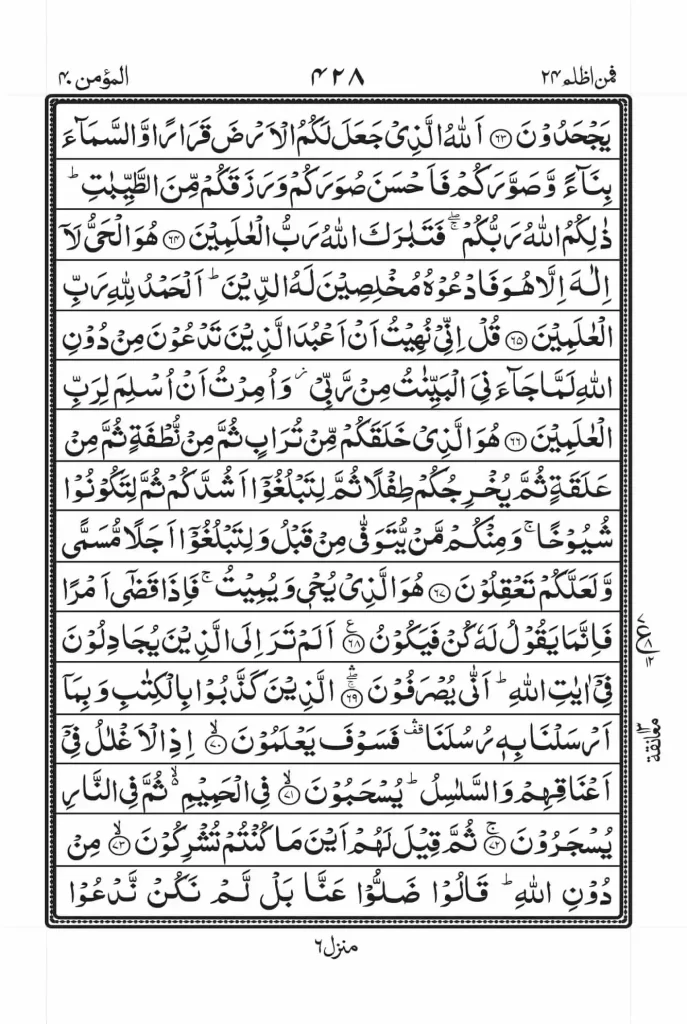 فمن اظلم ٢٤ ٤٢٨ المؤمن ٤٠
يَجۡحَدُوۡنَ ﴿۶۳﴾ اَللّٰهُ الَّذِىۡ جَعَلَ لَـكُمُ الۡاَرۡضَ قَرَارًا وَّالسَّمَآءَ
بِنَآءً وَّصَوَّرَكُمۡ فَاَحۡسَنَ صُوَرَكُمۡ وَرَزَقَكُمۡ مِّنَ الطَّيِّبٰتِ ؕ
ذٰ لِكُمُ اللّٰهُ رَبُّكُمۡ ۖۚ فَتَبٰرَكَ اللّٰهُ رَبُّ الۡعٰلَمِيۡنَ ﴿۶۴﴾ هُوَ الۡحَىُّ لَاۤ
اِلٰهَ اِلَّا هُوَ فَادۡعُوۡهُ مُخۡلِصِيۡنَ لَهُ الدِّيۡنَ ؕ اَلۡحَمۡدُ لِلّٰهِ رَبِّ
الۡعٰلَمِيۡنَ ﴿۶۵﴾ قُلۡ اِنِّىۡ نُهِيۡتُ اَنۡ اَعۡبُدَ الَّذِيۡنَ تَدۡعُوۡنَ مِنۡ دُوۡنِ
اللّٰهِ لَمَّا جَآءَنِىَ الۡبَيِّنٰتُ مِنۡ رَّبِّىۡ وَاُمِرۡتُ اَنۡ اُسۡلِمَ لِرَبِّ
الۡعٰلَمِيۡنَ ﴿۶۶﴾ هُوَ الَّذِىۡ خَلَقَكُمۡ مِّنۡ تُرَابٍ ثُمَّ مِنۡ نُّطۡفَةٍ ثُمَّ مِنۡ
عَلَقَةٍ ثُمَّ يُخۡرِجُكُمۡ طِفۡلًا ثُمَّ لِتَبۡلُغُوۡۤا اَشُدَّكُمۡ ثُمَّ لِتَكُوۡنُوۡا
شُيُوۡخًا ۚ وَمِنۡكُمۡ مَّنۡ يُّتَوَفّٰى مِنۡ قَبۡلُ وَلِتَبۡلُغُوۡۤا اَجَلًا مُّسَمًّى
وَّلَعَلَّكُمۡ تَعۡقِلُوۡنَ ﴿۶۷﴾ هُوَ الَّذِىۡ يُحۡىٖ وَيُمِيۡتُ ۚ فَاِذَا قَضٰٓى اَمۡرًا
فَاِنَّمَا يَقُوۡلُ لَهٗ كُنۡ فَيَكُوۡنُ ﴿۶۸﴾ اَلَمۡ تَرَ اِلَى الَّذِيۡنَ يُجَادِلُوۡنَ
فِىۡۤ اٰيٰتِ اللّٰهِ ؕ اَنّٰى يُصۡرَفُوۡنَ ﴿۶۹﴾ الَّذِيۡنَ كَذَّبُوۡا بِالۡكِتٰبِ وَبِمَاۤ
اَرۡسَلۡنَا بِهٖ رُسُلَنَا ۛ فَسَوۡفَ يَعۡلَمُوۡنَ ﴿۷۰﴾ اِذِ الۡاَغۡلٰلُ فِىۡۤ
اَعۡنَاقِهِمۡ وَالسَّلٰسِلُ ؕ يُسۡحَبُوۡنَ ﴿۷۱﴾ فِى الۡحَمِيۡمِ ۙ ثُمَّ فِى النَّارِ
يُسۡجَرُوۡنَ ﴿۷۲﴾ ثُمَّ قِيۡلَ لَهُمۡ اَيۡنَ مَا كُنۡتُمۡ تُشۡرِكُوۡنَ ﴿۷۳﴾ مِنۡ
دُوۡنِ اللّٰهِ ؕ قَالُوۡا ضَلُّوۡا عَنَّا بَلۡ لَّمۡ نَكُنۡ نَّدۡعُوۡا
ع ٧ ٨ ١٢
معانقة ١٣
منزل ٦